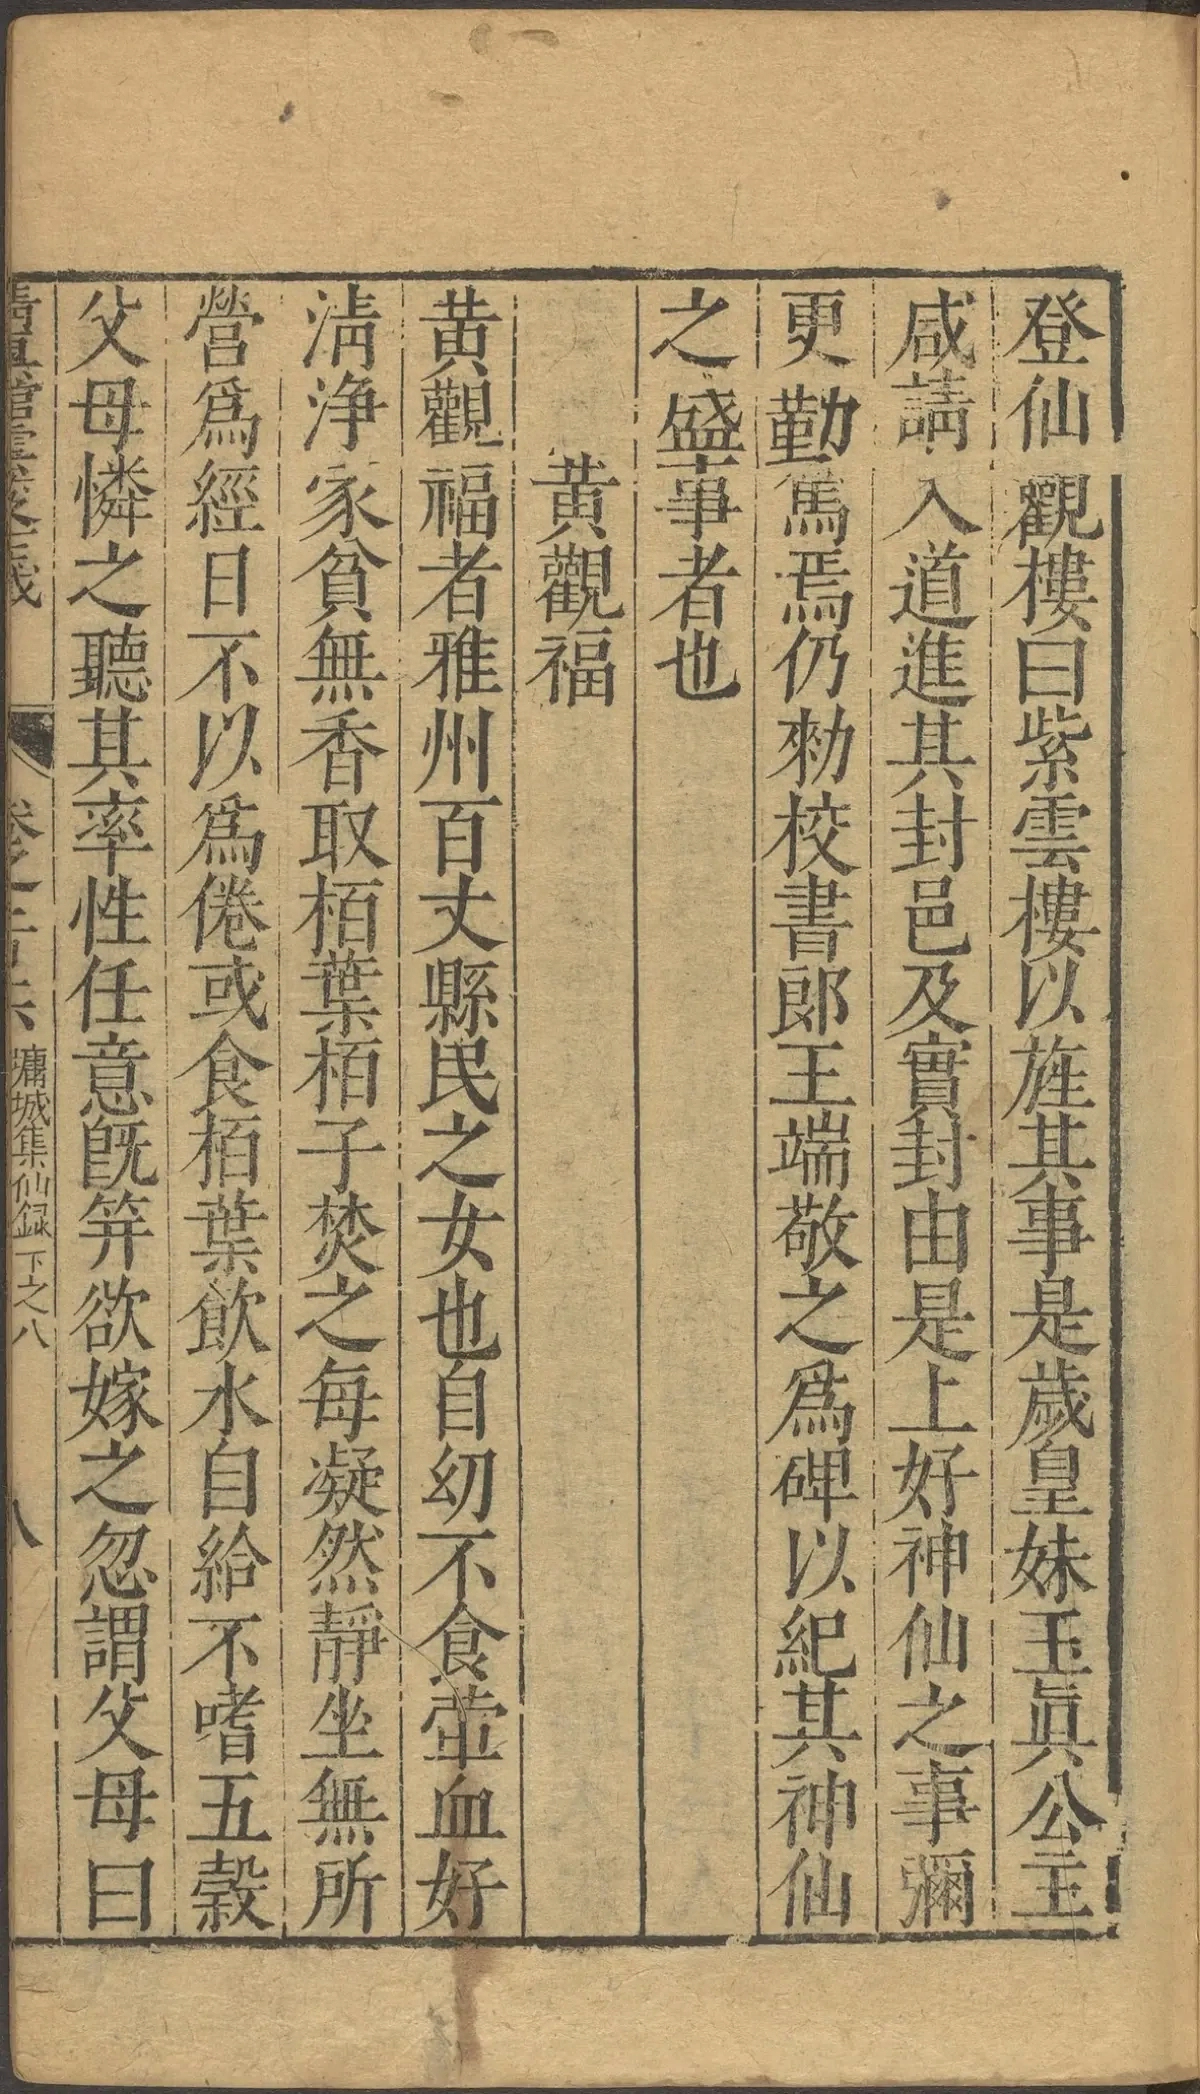 登仙觀樓曰紫雲樓以旌其事是歲皇妹玉眞公主
咸請入道進其封邑及實封由是上好神仙之事彌
更勤篤焉仍勑校書郎王端敬之爲碑以紀其神仙
之盛事者也
黄觀福
黄觀福者雅州百丈縣民之女也自幼不食葷血好
淸浄家貧無香取栢葉栢子焚之每凝然靜坐無所
營爲經日不以爲倦或食栢葉飲水自給不嗜五穀
父母憐之聽其率性任意旣笄欲嫁之忽謂父母曰
墉城集仙録 下之八
八